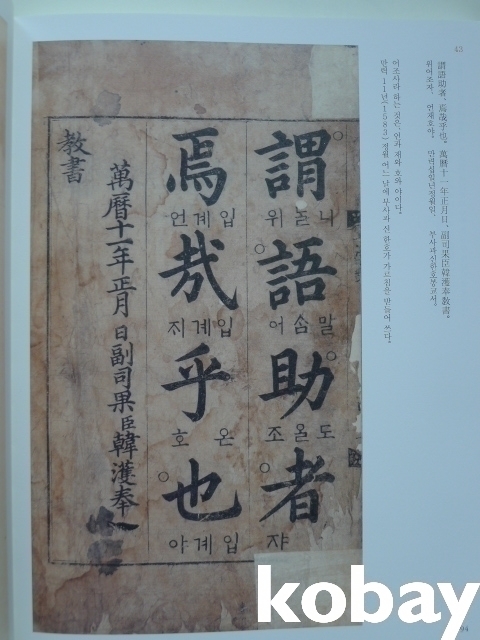 謂語助者, 焉哉乎也. 萬曆十一年正月日, 副司果臣韓濩奉敎書.
위어조자, 언재호야. 만력십일년정월일, 부사과신한호봉교서.
어조사라 하는 것은, 언과 재와 호와 야이다.
만력 11년(1583) 정월 어느 날에 부사과 신 한호가 가르침을 받들어 쓰다.
謂
語
어 솜 말
助
조 올 도
者
쟈
焉
언 계 입
哉
지 계 입
乎
호 온
也
아 계 입
萬曆十一年正月 日副司果臣韓濩奉
教書
kobay
94